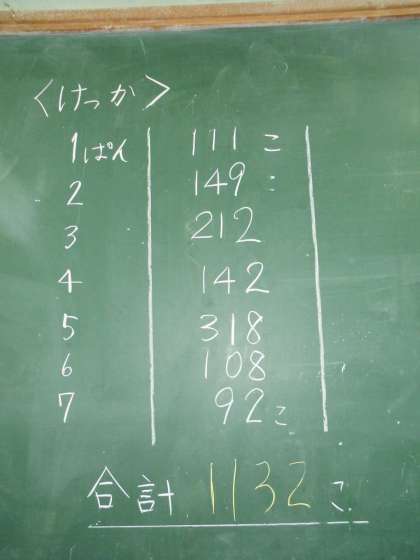 〈けっか〉
1ぱん 111こ
2 149〃
3 212
4 142
5 318
6 108
7 92こ
合計 1132こ